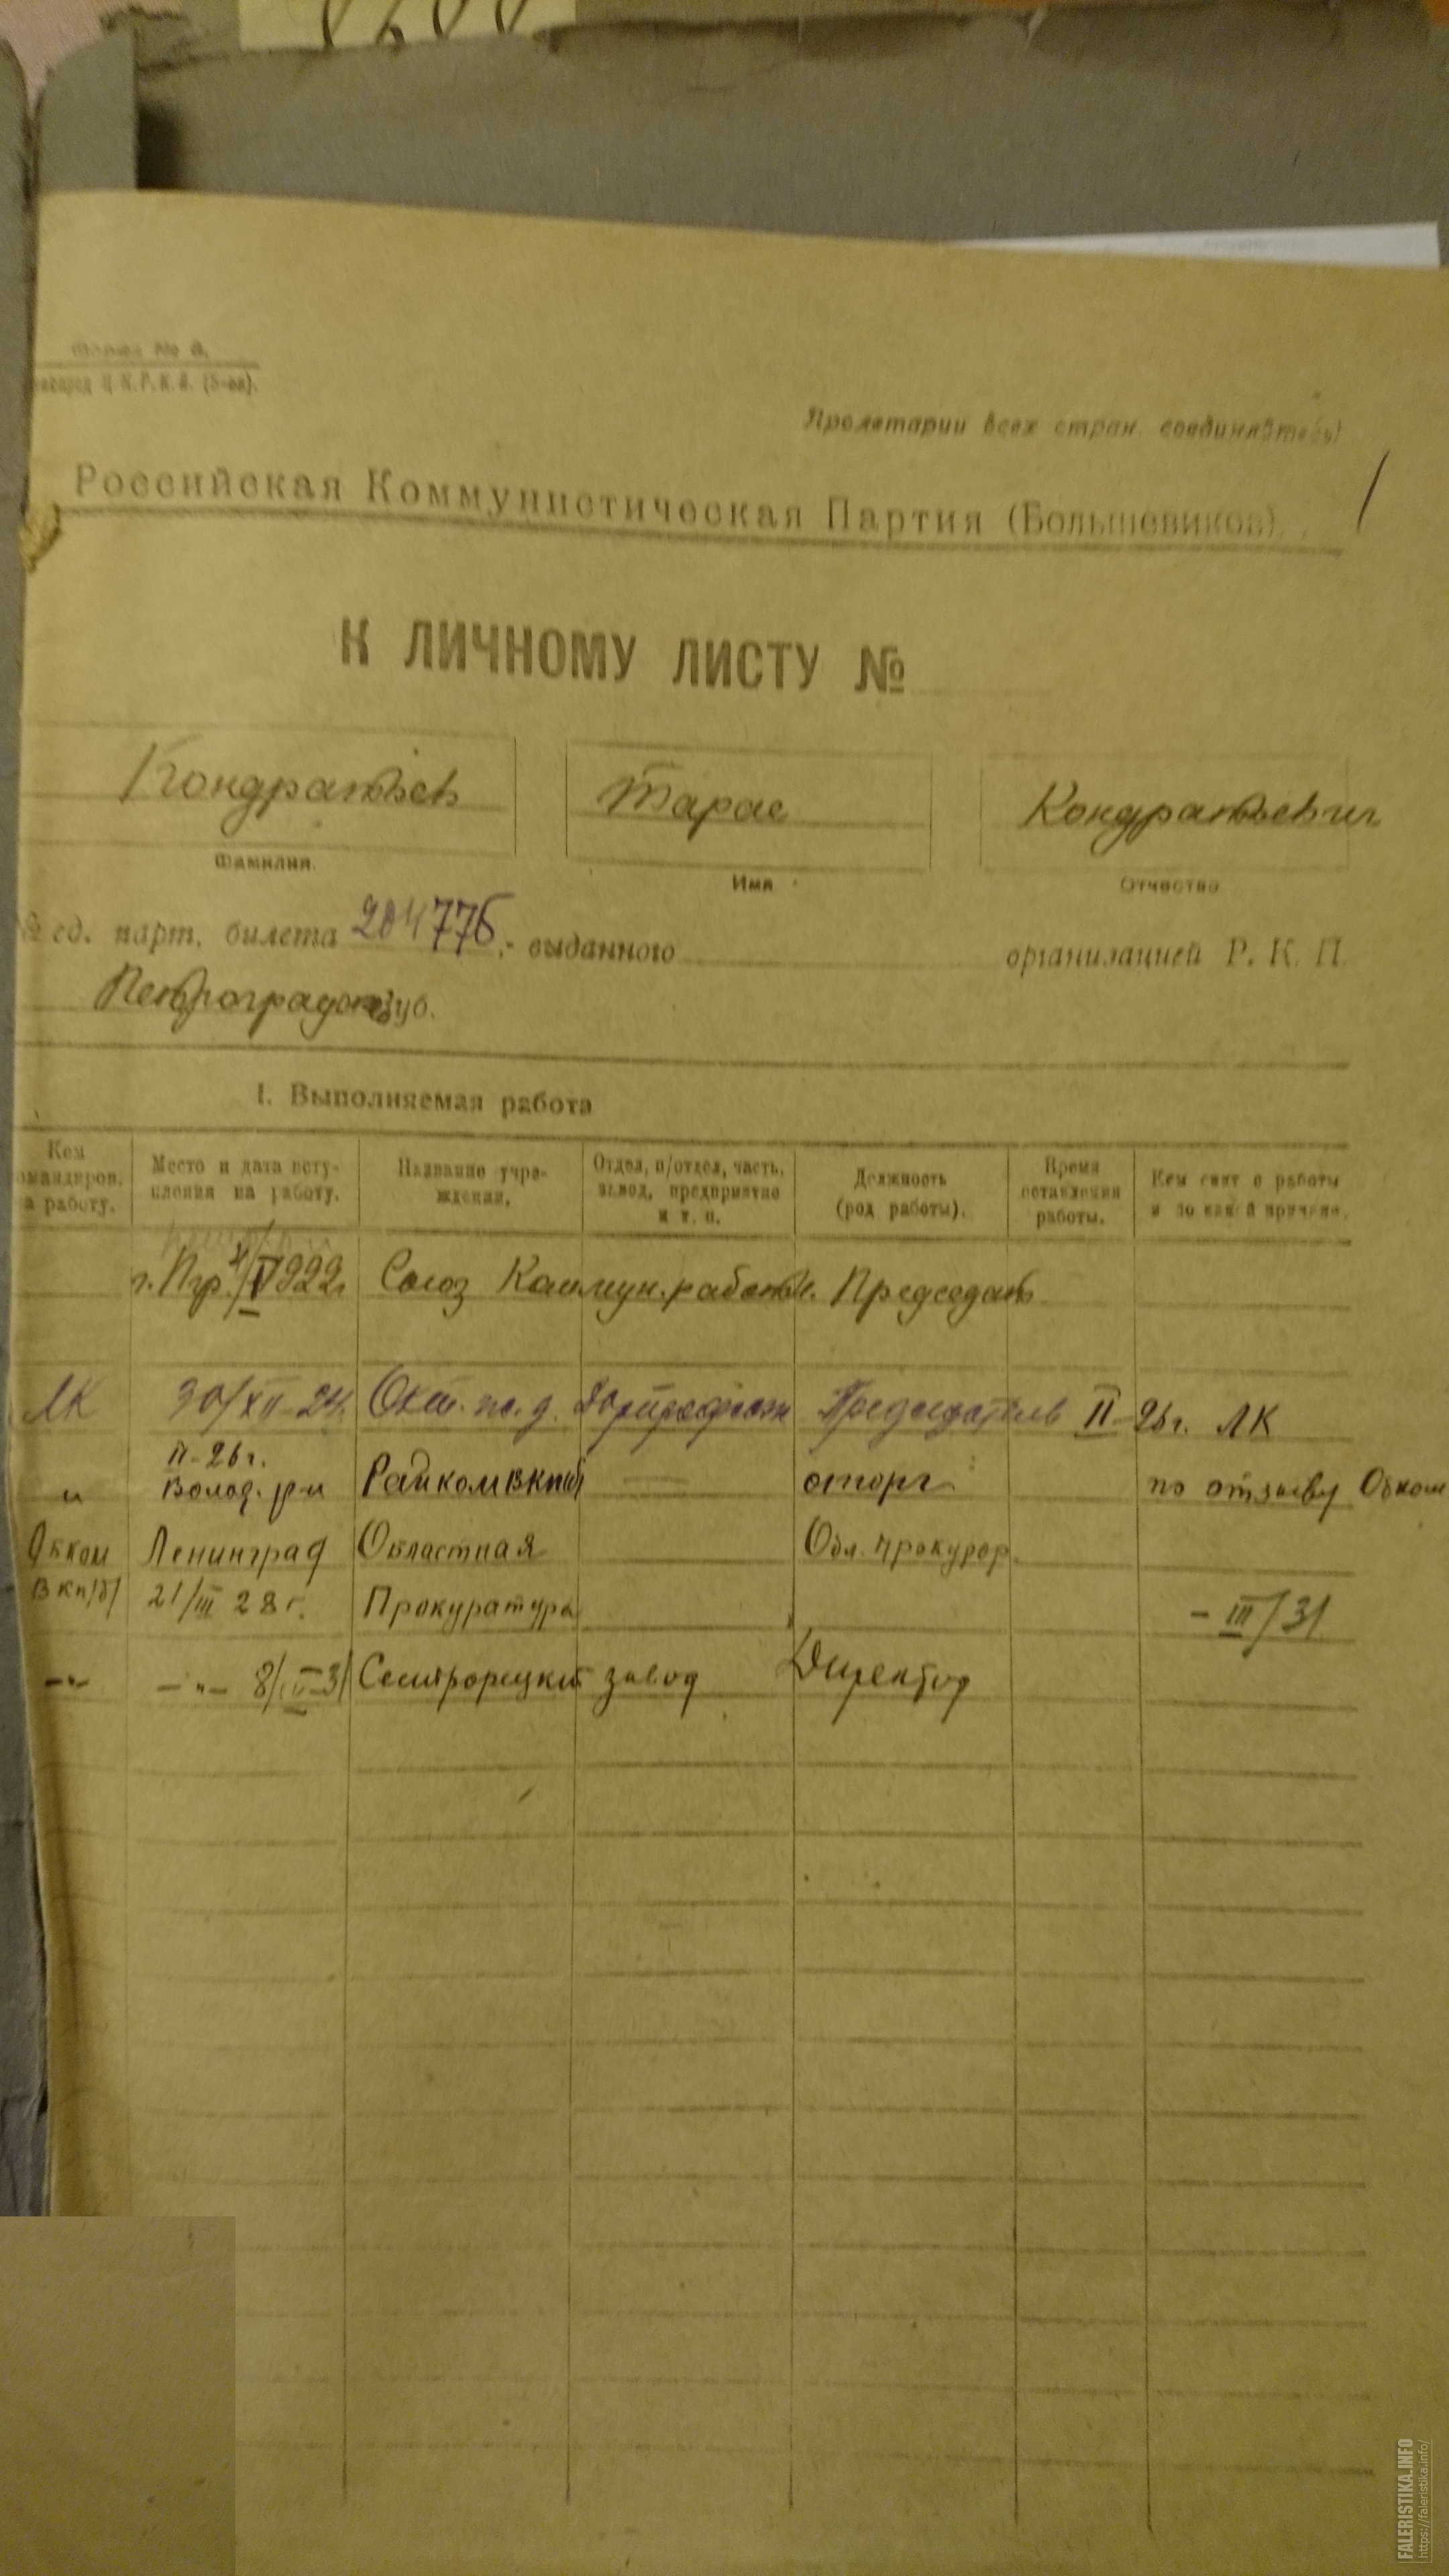 Форма № 6.
Ц.К.Р.К.П. (б-ов).
Пролетарии всех стран, соединяйтесь!
Российская Коммунистическая Партия (Большевиков).
К ЛИЧНОМУ ЛИСТУ №
Кондратьев Тарас Кондратьевич
Фамилия. Имя Отчество
№ ед. парт. билета 204776, выданного организацией Р. К. П.
Петроградск губ.
I. Выполняемая работа
Кем командиров. на работу. Место и дата поступления на работу. Название учреждения. Отдел, п/отдел, часть, завод, предприятие и т. п. Должность (род работы). Время оставления работы. Кем снят с работы и по какой причине.
г. Птр. X/V 922г Союз Коммун. работн. Председат
ЛК 30/XII-24. Окт. ж. д. Дорпрофсож Председатель II-26г. ЛК
II-26г.
" Волод. р-н Райком ВКП(б) — оторг по отзыву Обком
Обком Ленинград Областная Обл. прокурор
ВКП(б) 21/III 28 г. Прокуратура - III/31
-"- -"- 8/IV-31 Сестрорецкий завод Директор
FALERISTIKA.INFO
https://faleristika.info/